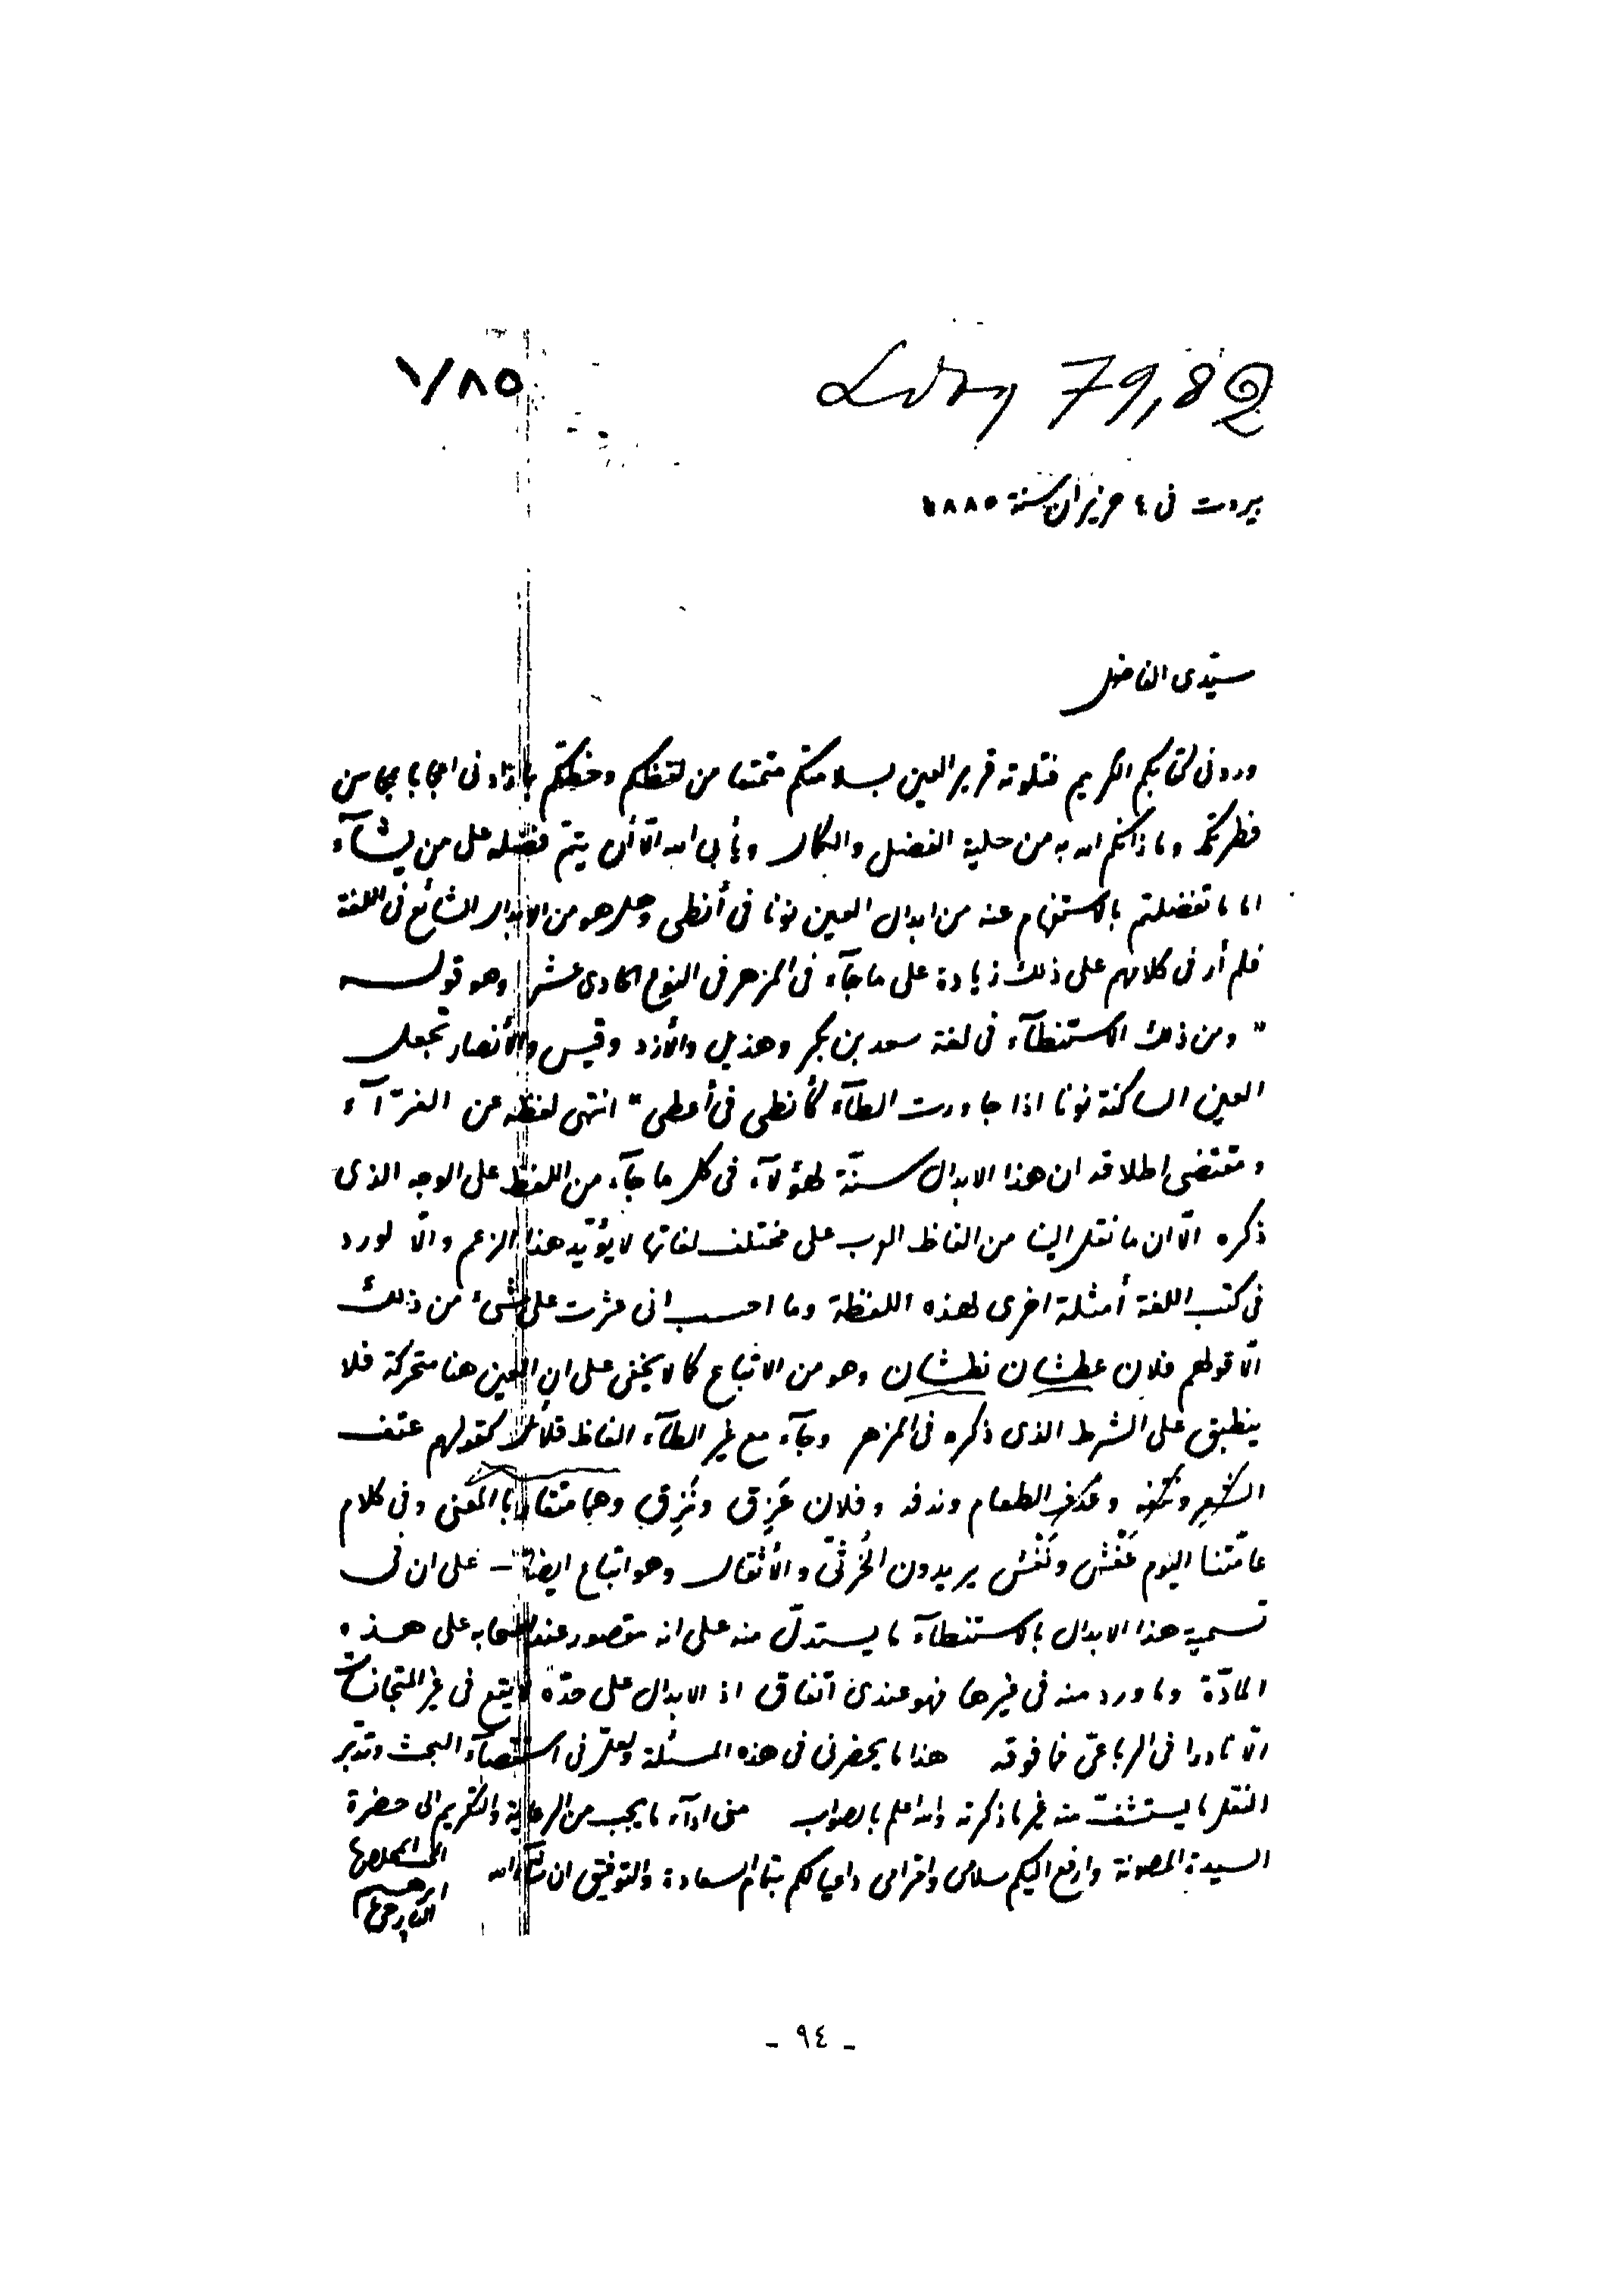 ١/٨٥
79,82
بيروت فى ٤ حزيران سنة ١٨٨٥
سيّدى الفاضل
ورد نى كتابكم الكريم فتلوته قرير العين بسلامتكم متمتعا من لفظكم وخطكم بما زاد نى اعجابا بمحاسن
فطرتكم وما زانكم الله به من حلية الفضل والكمال ويأبى الله الّا أن يتمّ فضله على من يشآء
اما ما تفضلتم بالاستفهام عنه من ابدال العين نونا فى أنطى وهل هو من الابدال الشائع فى اللغة
فلم أر فى كلامهم على ذلك زيادة على ما جآء فى المزهر فى النوع الحادى عشر وهو قوله
" ومن ذلك الاستنطآء فى لغة سعد بن بكر وهذيل والأزد وقيس والأنصار تجعل
العين الساكنة نونا اذا جاورت الطآء كأنطى فى أعطى " انتهى لفظه عن الفرّآء
ومقتضى اطلاقه ان هذا الابدال سنّة لهؤلآء فى كل ما جآء من اللفظ على الوجه الذى
ذكره الّا ان ما نقل الينا من الفاظ العرب على مختلف لغاتها لا يؤيّد هذا الزعم والّا لورد
فى كتب اللغة أمثلة اخرى لهذه اللفظة وما احسب انى عثرت على شىء من ذلك
الّا قولهم فلان عطشان نطشان وهو من الاتباع كما لا يخفى على ان العين هنا متحركة فلا
ينطبق على الشرط الذى ذكره فى المزهر وجآء مع غير الطآء الفاظ قلائل كقولهم عتف
الشعر ونتفه و عدف الطعام وندفه وفلان عَزِق ونَزِق وهما متقاربا المعنى وفى كلام
عامّتنا اليوم عَفْش ونَفْش يريدون الخُرثىّ والأثقال وهو اتباع ايضا - على ان فى
تسمية هذا الابدال بالاستنطآء ما يستدلّ منه على انه مقصور عند اصحابه على هذه
المادّة وما ورد منه فى غيرها فهو عندى اتفاق اذ الابدال على حدّه لا يقع فى غير المتجانسات
الّا نادرا فى الرباعىّ فما فوقه هذا ما يحضرنى فى هذه المسئلة ولعلّ فى استقصآء البحث وتدبّر
النقل ما يستشفّ منه غير ما ذكرته والله اعلم بالصواب منى ادآء ما يجب من الرعاية والتكريم الى حضرة
السيدة المصونة وارفع اليكم سلامى واحترامى داعيا لكم بتمام السعادة والتوفيق ان شآء الله
المخلص
ابرهيم
اليازجى
- ٩٤ -